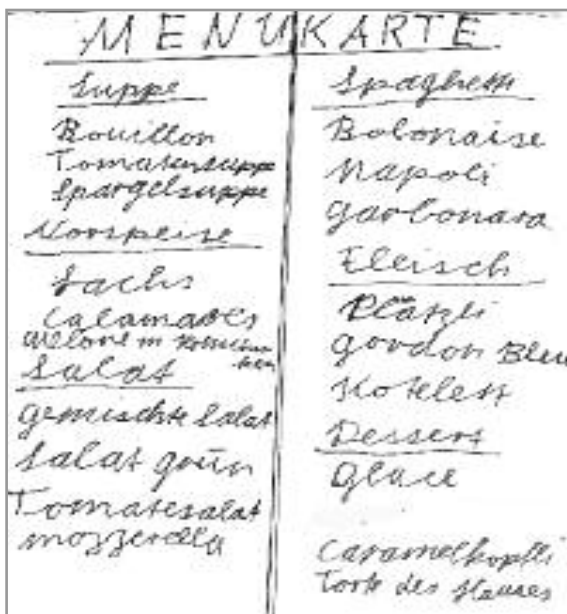 MENUKARTE
Suppe
Bouillon
Tomatensuppe
Spargelsuppe
Vorspeise
Lachs
Calamares
Melone m Rohschin
ken
Salat
gemischte Salat
Salat grün
Tomatesalat
mozzerella
Spaghetti
Bolonaise
Napoli
Garbonara
Fleisch
Plätzli
Gordon Bleu
Kotelett
Dessert
Glace
Caramelköpfli
Torte des Hauses